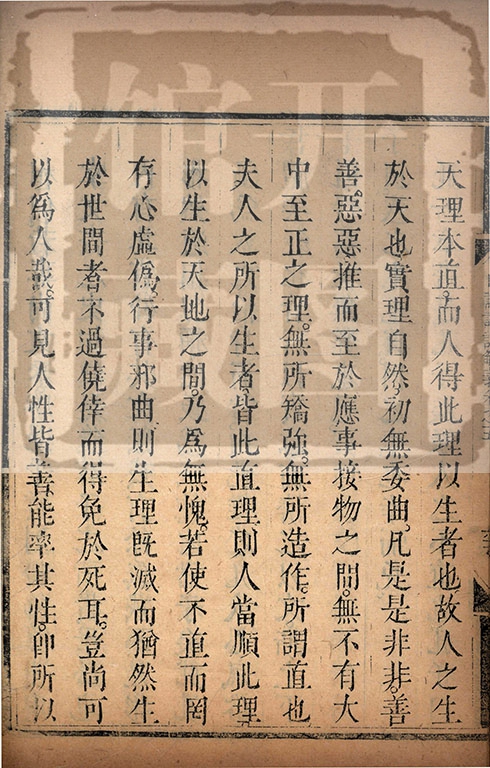 天理本直。而人得此理以生者也故人之生
於天也。實理自然。初無委曲。凡是是非非。善
善。惡惡。推而至於應事接物之間。無不有大
中至正之理。無所矯強。無所造作。所謂直也
夫人之所以生者皆此直理則人當順此理
以生於天地之間。乃為無愧。若使不直而罔
存心虛偽。行事邪曲。則生理既滅而猶然生
於世間者不過僥倖而得免於死耳。豈尚可
以為人哉。可見人性皆善能率其性。即所以